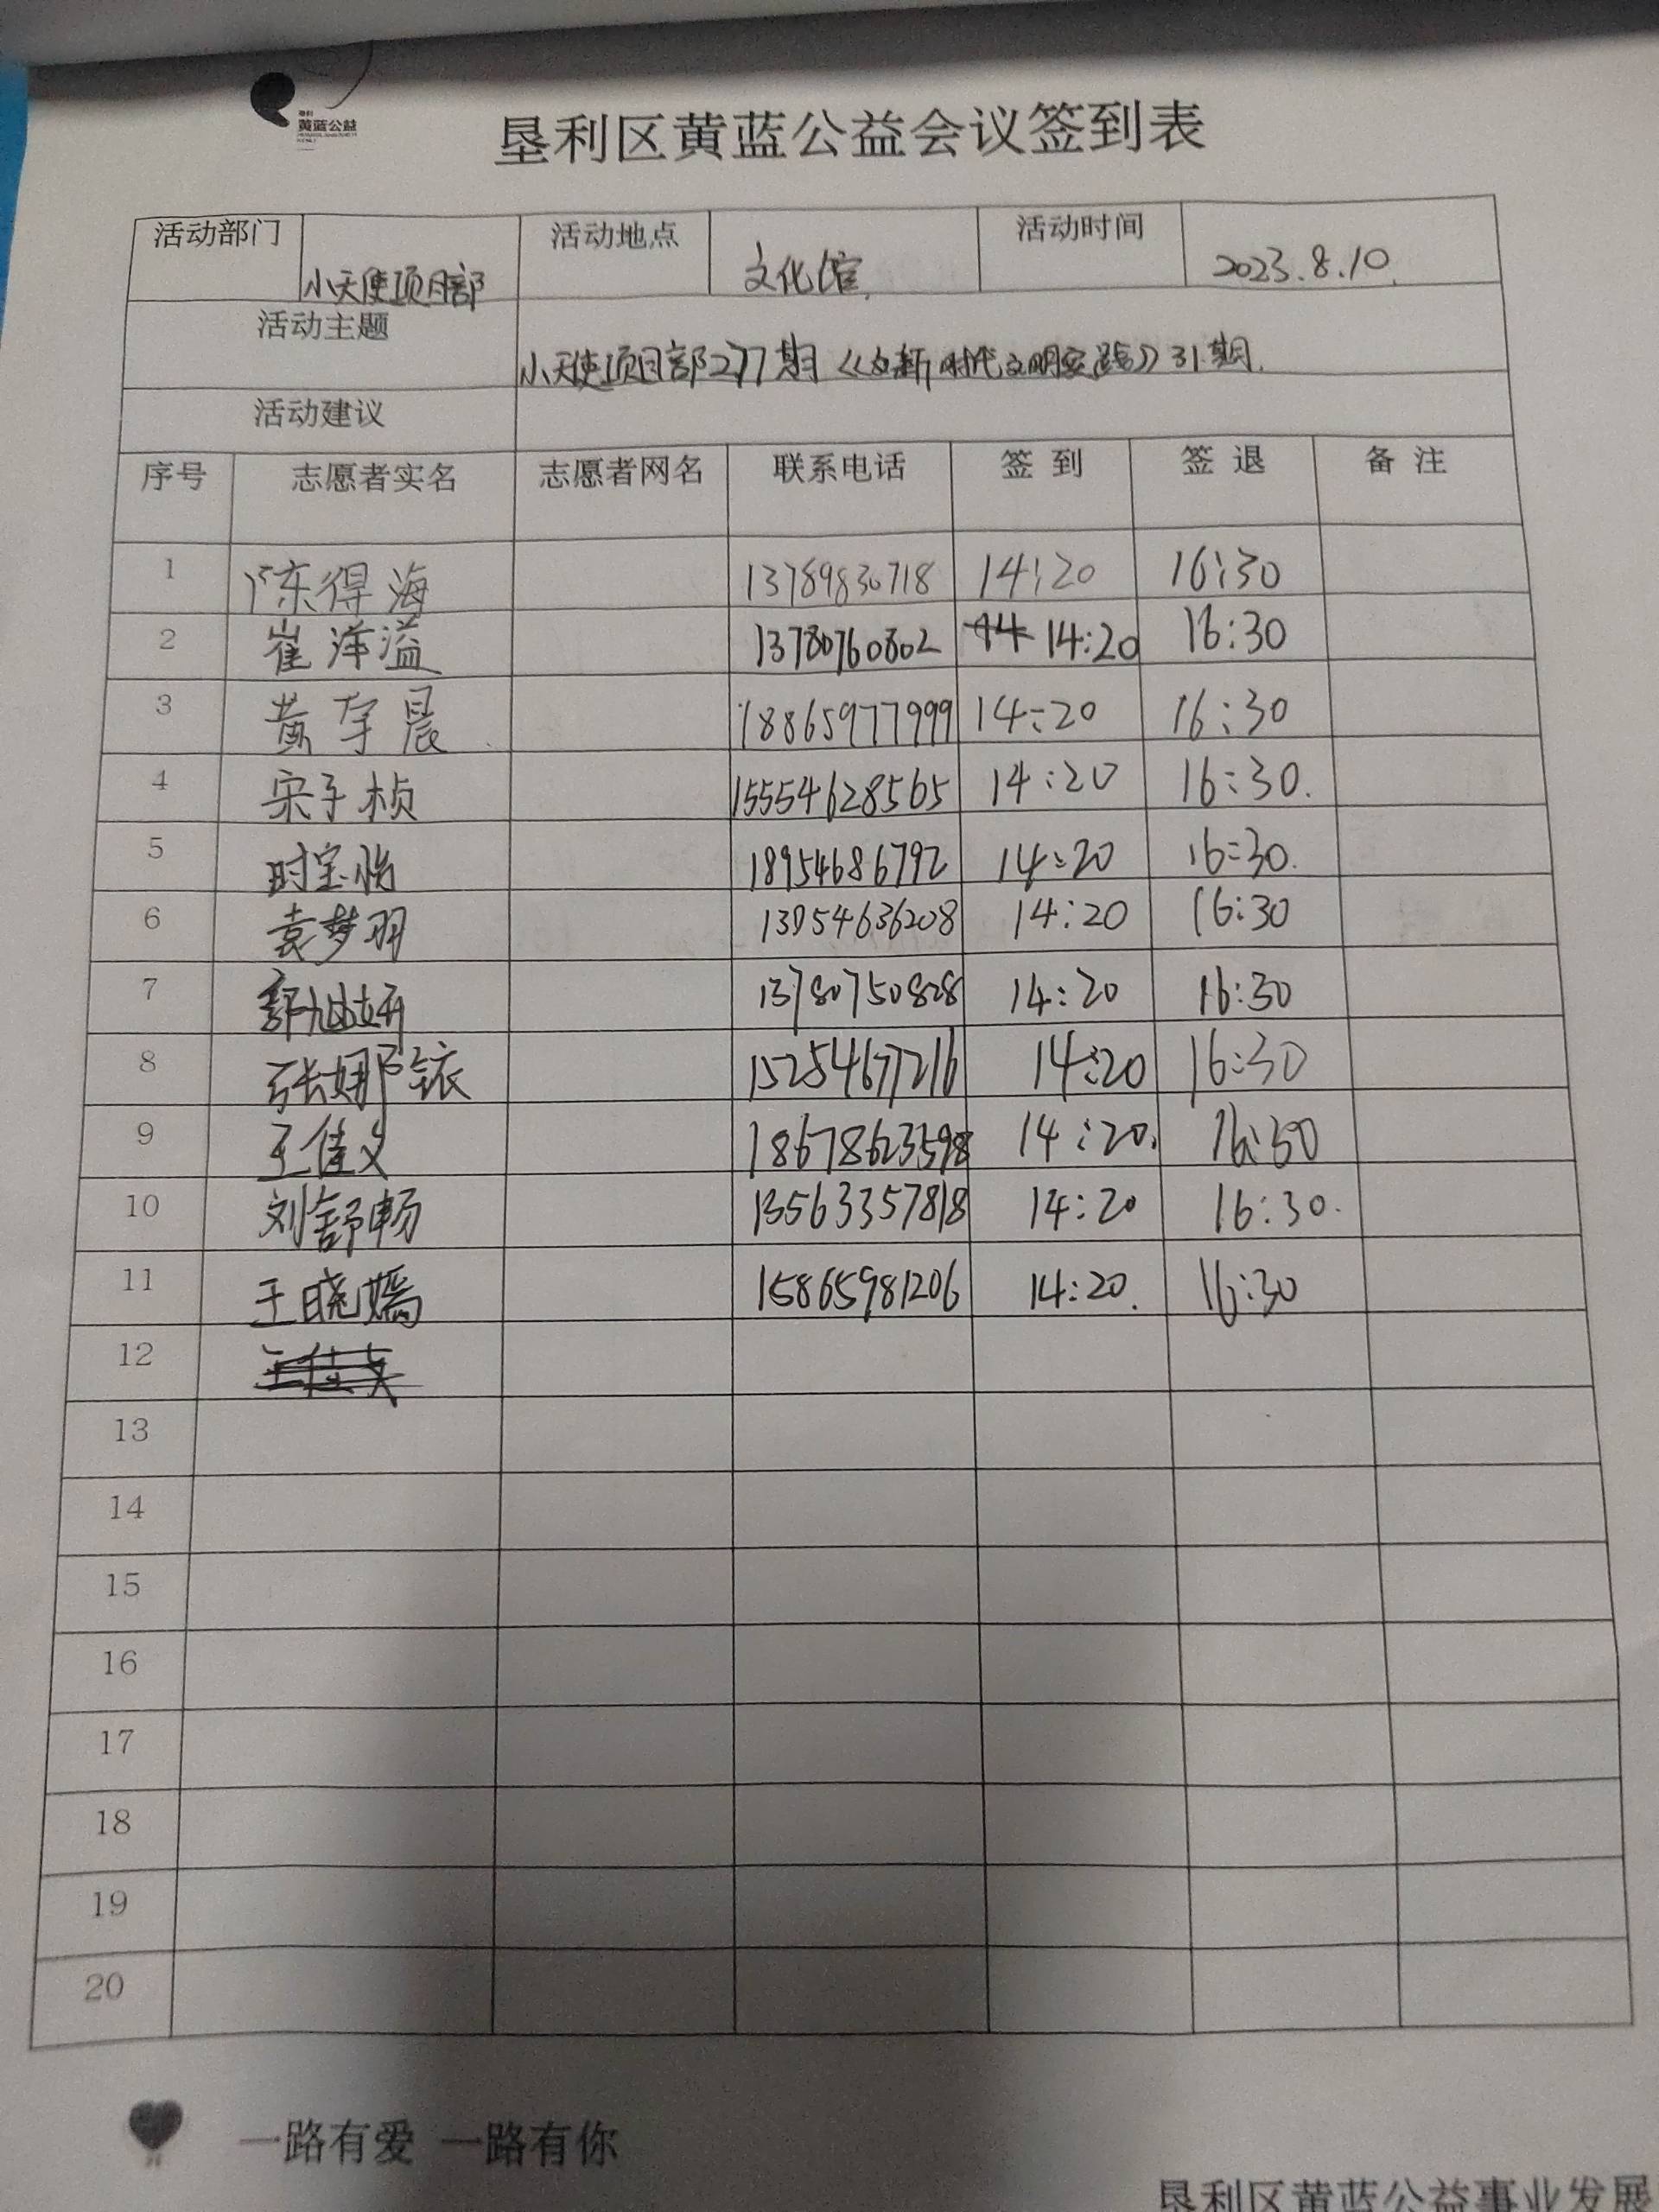 黄蓝公益
垦利区黄蓝公益会议签到表
活动部门 小天使项目部 活动地点 文化馆 活动时间 2023.8.10
活动主题 小天使项目部277期《新时代文明实践》31期
活动建议
序号 志愿者实名 志愿者网名 联系电话 签到 签退 备注
1 陈得海 13789830718 14:20 16:30
2 崔洋溢 13780760802 14 14:20 16:30
3 黄宇晨 18865977999 14:20 16:30
4 宋子桢 15554628565 14:20 16:30.
5 时宝怡 18954686792 14:20 16:30.
6 袁梦羽 13954636208 14:20 16:30
7 郭旭妍 13780750828 14:20 16:30
8 张娜铱 15254677216 14:20 16:30
9 王佳文 18678623598 14:20. 16:30
10 刘舒畅 13563357818 14:20 16:30.
11 王晓嫣 15865981206 14:20. 16:30
12 王佳文
13
14
15
16
17
18
19
20
一路有爱 一路有你
垦利区黄蓝公益事业发展